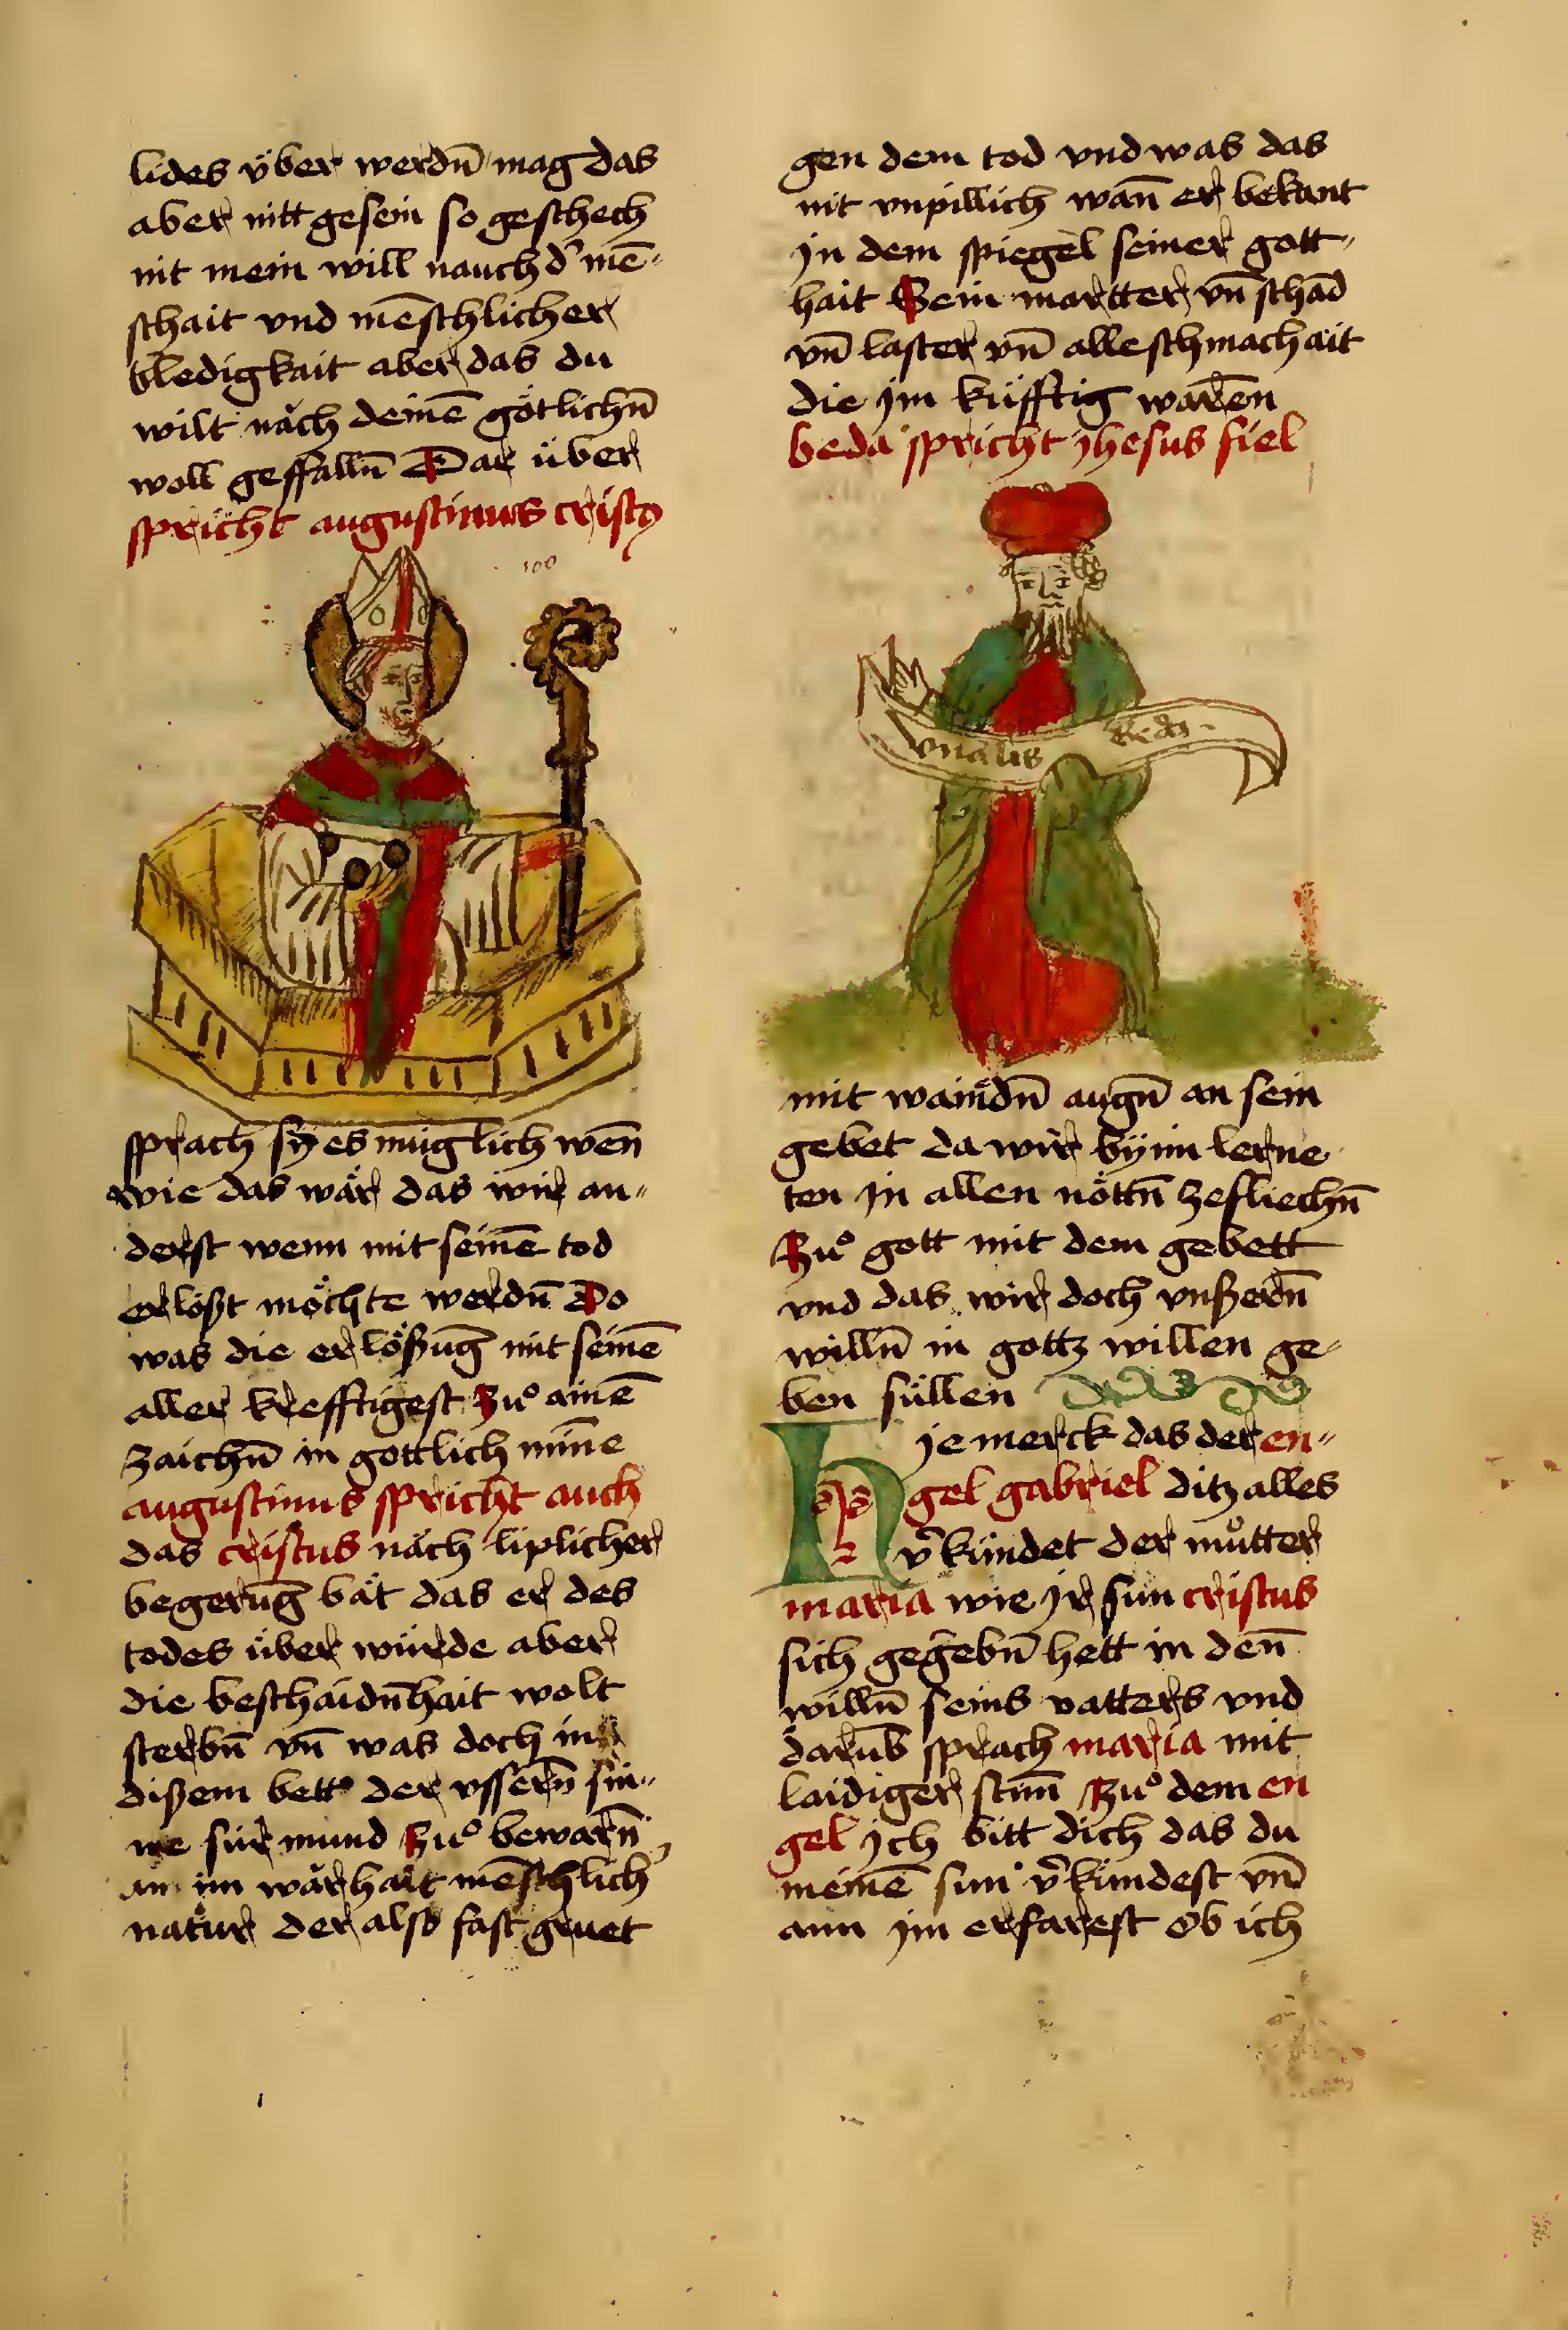 lides v̈ber werdn̄ mag das
aber nitt gesein so geschech
nit mein will nauch d' mē-
schait vnd mēschlicher
bledigkait aber das du
wilt näch deinē götlichn̄
woll geffalln̄ Dar über
spricht augustinus cristꝰ
100
sprach sÿ es müglich wen̄
wie das wär das wir an-
derst wenn mit seinē tod
erlößt möchte werdn̄ Do
was die erlößūg mit seinē
aller krefftigest Zuͦ ainē
zaichn̄ in gottlich mīne
augustinus spricht auch
das cristus näch liplicher
begerūg bät das er des
todes über würde aber
die beschaidn̄hait wolt
sterbn̄ vn̄ was doch in
dißem bett der vssern̄ sin-
ne für mund Zuͦ bewarn̄
an im wärhait mēschlich'
natür der also fast gruet
gen dem tod vnd was das
nit vnpillich wan̄ er bekant
jn dem spiegel seiner gott-
hait Sein martter vn̄ schād
vn̄ laster vn̄ alle schmachait
die jm küfftig warēn
beda spricht jhesus fiel
Beda
mit waindn̄ augn̄ an sein
gebet da wir bÿ im lerne
ten jn allen nöttn̄ zefliechn̄
Zuͦ gott mit dem gebett
vnd das wir doch vnßern̄
willn̄ in gottz willen ge-
ben süllen
Hje merck das der en-
gel gabriel ditz alles
v̄kündet der muͦtter
maria wie jr sun cristus
sich gegebn̄ hett in den̄
willn̄ seins vatters vnd
darūb sprach maria mit
laidiger stim̄ Zuͦ dem en
gel jch bitt dich das du
meinē sun v̄kündest vn̄
ann jm erfarest ob ich